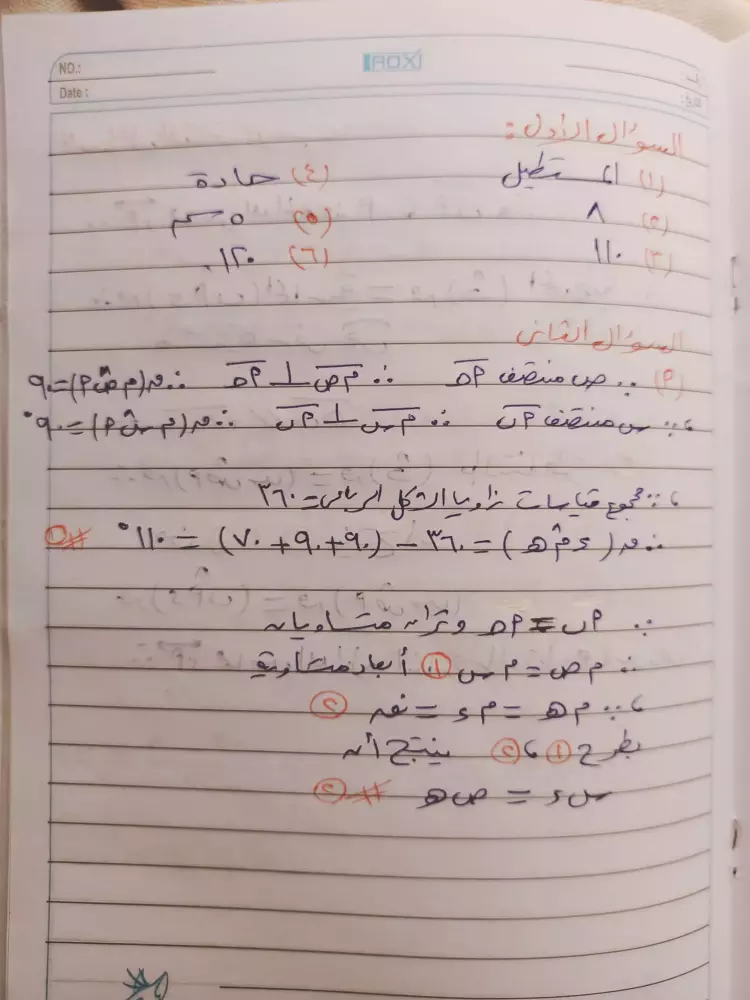 NO.:
ROX
Date :
السؤال الأول :
(١) المستطيل (٤) حادة
(٢) ٨ (٥) ٥ سم
(٣) ١١٠ (٦) ١٢٠
السؤال الثانى
(٢) ∵ ص منتصف ∴ م ص ⊥ ∴ = ٩٠
، ∵ س منتصف ∴ م س ⊥ ∴ = ٩٠°
، ∵ مجموع قياسات زوايا الشكل الرباعى = ٣٦٠
∴ ق ( ء م هـ ) = ٣٦٠ − (٩٠ + ٩٠ + ٧٠) = ١١٠° # ①
∵ وتران متساويان
∴ م ص = م س ① أبعاد متساوية
، ∵ م هـ = م ء = نق ②
بطرح ① ، ② ينتج أن
س ء = ص هـ # ②